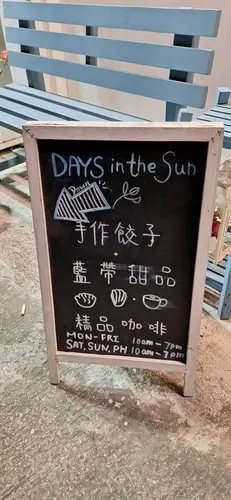 DAYS in the Sun
Down
手作餃子
·
藍帶甜品
精品咖啡
MON-FRI 10am-7pm
SAT, SUN, PH 10am-7pm